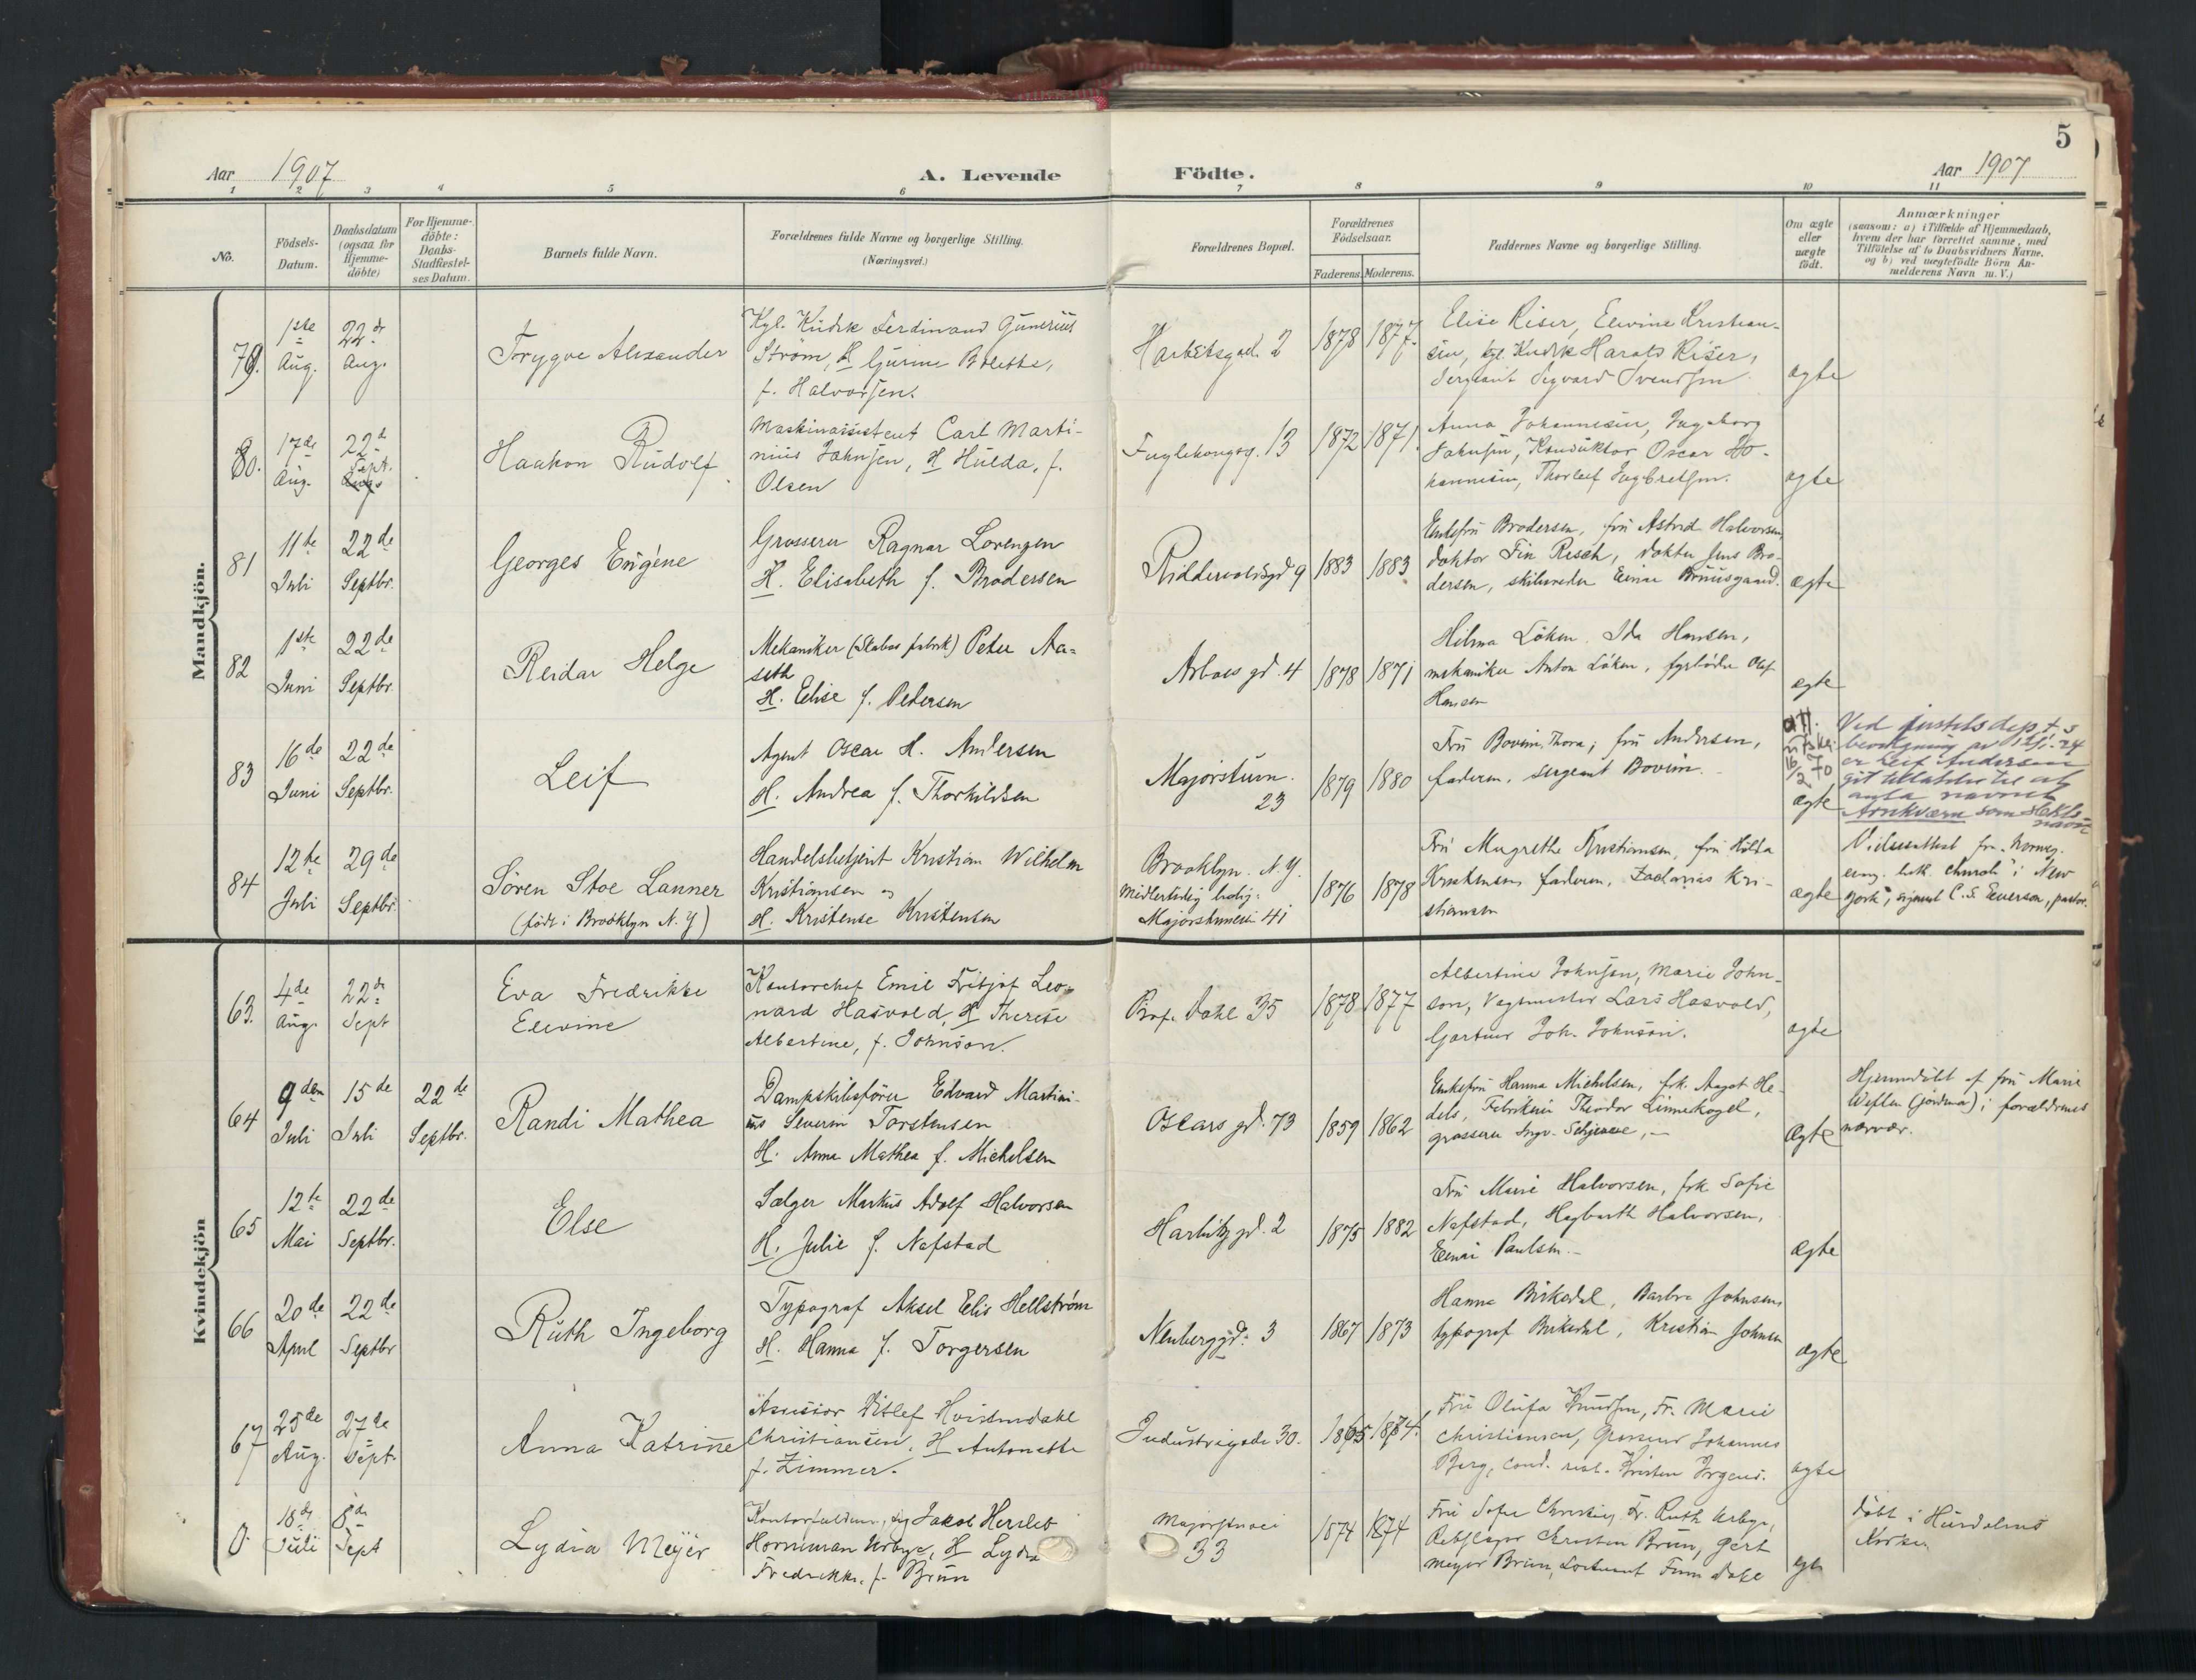 5
Aar 1907
A. Levende
Födte.
Aar 1907
1 2 3 4 5 6 7 8 9 10 11
No.
Födsels-
Datum.
Daabsdatum
(ogsaa for
Hjemme-
döbte)
For Hjemme-
döbte:
Daabs-
Stadfæstel-
ses Datum.
Barnets fulde Navn.
Forældrenes fulde Navne og borgerlige Stilling.
(Næringsvei.)
Forældrenes Bopæl.
Forældrenes
Födselsaar.
Faderens. Moderens.
Faddernes Navne og borgerlige Stilling.
Om ægte
eller
uægte
födt.
Anmærkninger
(saasom: a) i Tilfælde af Hjemmedaab,
hvem der har forrettet samme, med
Tilföielse af to Daabsvidners Navne.
og b) ved uægtefödte Börn An-
melderens Navn m. V.)
Mandkjön.
79.
1ste
Aug.
22de
Aug.
Trygve Alexander
Kgl. Kudsk Ferdinand Gunerius
Ström, H Gurine Bolette,
f. Halvorsen.
Harbitzgad. 2
1878
1877.
Elise Riser, Elevine Kristian-
sen, kgl. Kudsk Harald Riser,
Sergeant Sigvard Svendsen
ægte
80.
17de
Aug.
22de
Sept.
Haakon Rudolf
Maskinassistent Carl Marti-
nius Jahnsen, H Hulda, f.
Olsen
Fuglehaugsg. 13
1872
1871.
Anna Johannesen, Ingeborg
Jahnsen, Konduktør Oscar Jo-
hannesen, Thorleif Ingbretsen.
ægte
81
11te
Juli
22de
Septbr.
Georges Eugéne
Grosserer Ragnar Lorenzen
H. Elisabeth f. Brodersen
Riddervoldsgd 9
1883
1883
Enkefru Brodersen, fru Astrid Halvorsen,
doktor Fin Resch, doktor Jens Bro-
dersen, skibsreder Einar Bruusgaard.
ægte
82
1ste
Juni
22de
Septbr.
Reidar Helge
Mekaniker (Skabos fabrik) Peter Aa-
seth
H. Elise f. Pedersen
Arbos gd. 4
1878
1871
Hilma Löken, Ida Hansen,
mekaniker Anton Löken, fyrböder Olaf
Hansen
ægte
83
16de
Juni
22de
Septbr.
Leif
Agent Oscar H. Andersen
H. Andrea f. Thorkildsen
Majorstuvn.
23
1879
1880
Fru Bovim, Thora; fru Andersen,
faderen, sergeant Bovim.
att.
16/2 70
ægte
Ved justitsdep.t.s
bevilgning av 12/1.24
er Leif Andersen
git tilladelse til at
anta navnet
Arnkværn som slekts-
navn
84
12te
Juli
29de
Septbr.
Sören Stoe Lanner
(födt i Brooklyn N. Y)
Handelsbetjent Kristian Wilhelm
Kristiansen og
H. Kristense Kristensen
Brooklyn. N.Y.
Midlertidig bolig:
Majorstuveien 41
1876
1878
Fru Magrethe Kristiansen, fru Hilda
Kristensen, faderen, Zacharias Kri-
stiansen
ægte
Vielsesattest fra „Norweg.
evang. luth. church" i New
York, signeret C. S. Everson, pastor.
Kvindekjön
63.
4de
Aug.
22de
Sept
Eva Fredrikke
Elevine
Kontorchef Emil Fritjof Leo-
nard Hasvold, H Therese
Albertine, f. Johnson.
Prof. Dahl 35
1878
1877
Albertine Johnson, Marie John-
son, Vagtmester Lars Hasvold,
Gartner Joh. Johnson.
ægte
64
9den
Juli
15de
Juli
22de
Septbr.
Randi Mathea
Dampskibsförer Edvard Martini-
us Severin Torstensen
H. Anna Mathea f. Michelsen
Oscars gd. 73
1859
1862
Enkefru Hanna Michelsen, frk. Aagot He-
dels, Fabrikeier Theodor Linnekogel,
grosserer Ingv. Schjelde,
Ægte
Hjemmedöbt af fru Marie
Weflen (jordmor) i forældrenes
nærvær.
65
12te
Mai
22de
Septbr.
Else
Sælger Markus Adolf Halvorsen
H. Julie f. Nafstad
Harbitzgd. 2
1875
1882
Fru Marie Halvorsen, frk Sofie
Nafstad, Hagbarth Halvorsen,
Einar Paulsen.
Ægte
66
20de
April
22de
Septbr
Ruth Ingeborg
Typograf Aksel Elis Hellström
H. Hanna f. Torgersen
Neuberggd. 3
1867
1873
Hanna Birkedal, Barbra Johnsen,
typograf Birkedal, Kristian Johnsen
ægte
67
25de
Aug.
27de
Sept.
Anna Katrine
Assessor Ditlef Hvistendahl
Christiansen, H Antonette
f. Zimmer.
Industrigade 30.
1865
1874.
Fru Olufa Knudsen, Fr. Marie
Christiansen, Grosserer Johannes
Berg, cand. real. Kristen Irgens.
ægte
0.
18de
Juli
8de
Sept
Lydia Meyer
Jacob Hersleb
Horniman Urbye, H Lydia
Fredrikke, f. Brun
Majorstuvei
33
1874
1874
Fru Sofie Christie, Fr. Ruth Urbye,
Christen Brun, Gert
Meyer Brun, Loitnant Finn Dahl
ægte
Döbt i Hurdalens
Kirke.